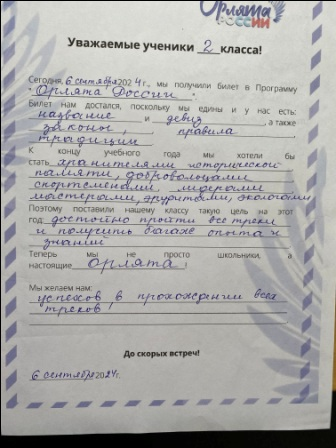 Орлята
РОССИИ
Уважаемые ученики 2 класса!
Сегодня, 6 сентября 2024 г., мы получили билет в Программу
"Орлята России".
Билет нам достался, поскольку мы едины и у нас есть:
название и девиз, а также
законы, правила,
традиции
К концу учебного года мы хотели бы
стать хранителями исторической
памяти, добровольцами
спортсменами, лидерами
мастерами, эрудитами, экологами
Поэтому поставили нашему классу такую цель на этот
год: достойно пройти все треки
и получить багаж опыта и
знаний
Теперь мы не просто школьники, а
настоящие орлята!
Мы желаем нам:
успехов в прохождении всех
треков.
До скорых встреч!
6 сентября 2024г.